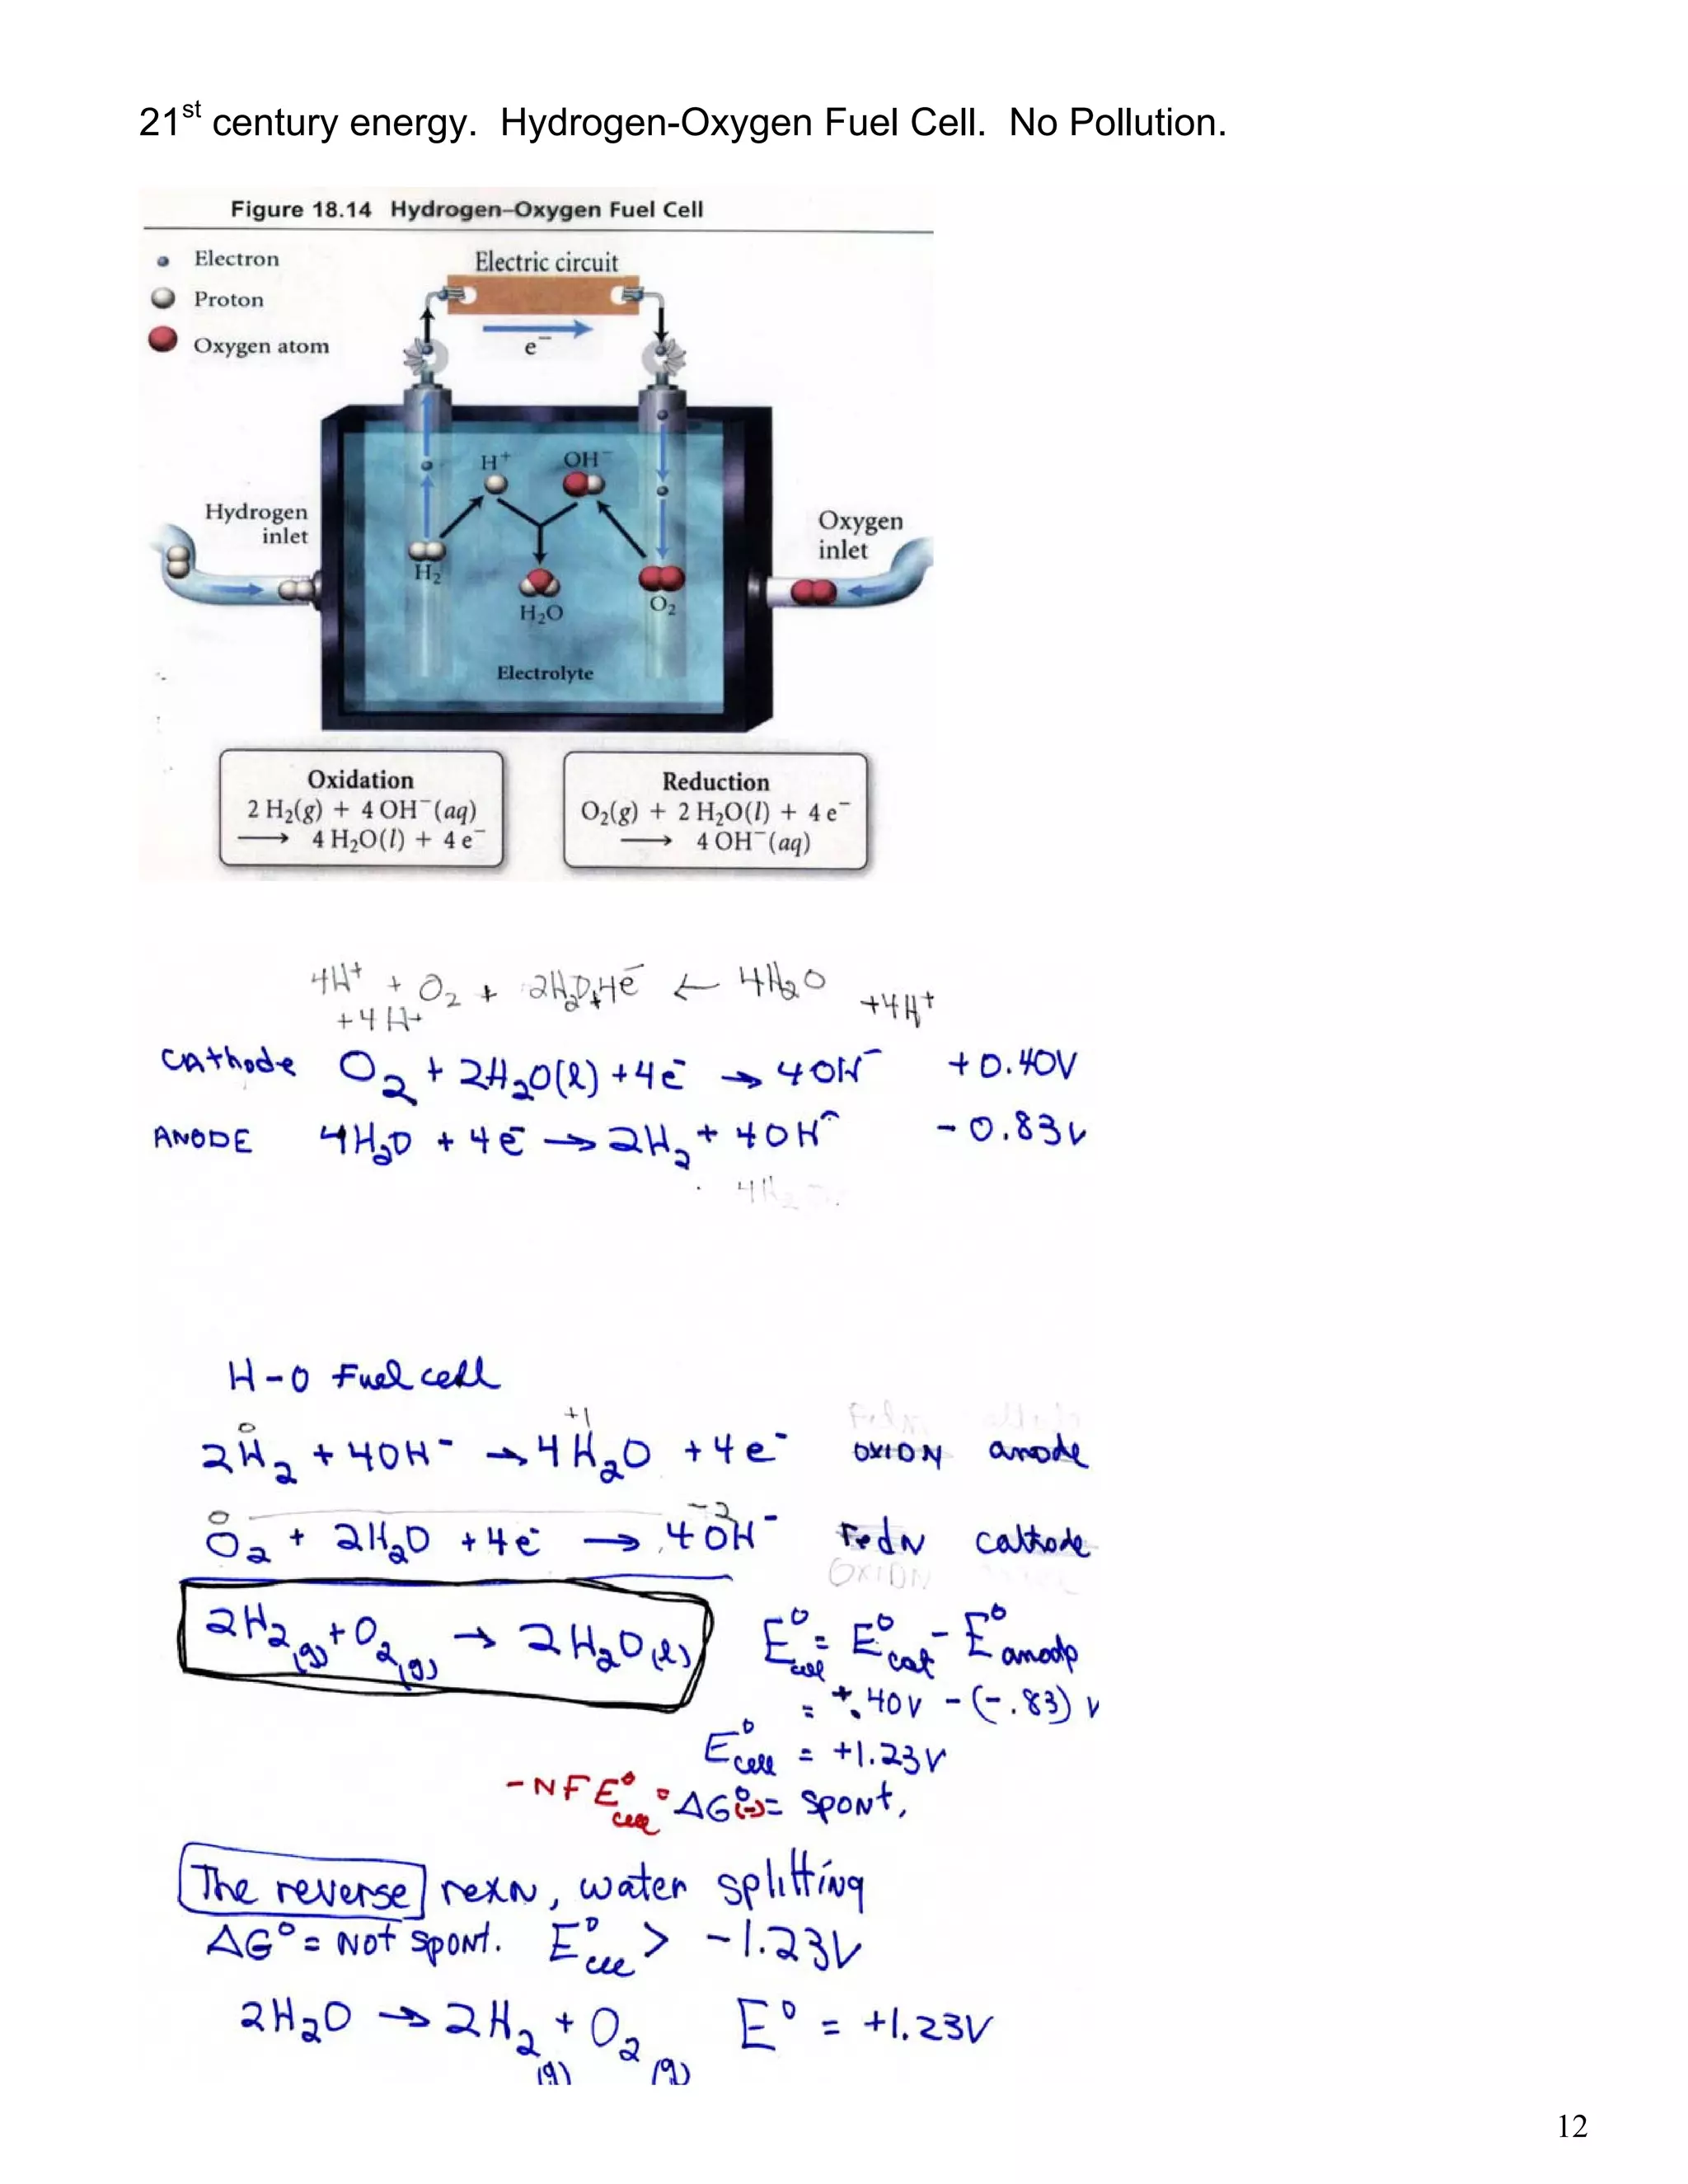 21st century energy. Hydrogen-Oxygen Fuel Cell. No Pollution.
Figure 18.14 Hydrogen–Oxygen Fuel Cell
Electron
Proton
Oxygen atom
Electric circuit
e⁻
H⁺
OH⁻
Hydrogen
inlet
Oxygen
inlet
H₂
H₂O
O₂
Electrolyte
Oxidation
2 H₂(g) + 4 OH⁻(aq)
⟶ 4 H₂O(l) + 4 e⁻
Reduction
O₂(g) + 2 H₂O(l) + 4 e⁻
⟶ 4 OH⁻(aq)
4H⁺ + O₂ + 2H₂O+4e⁻ ← 4H₂O
+4H+ +4H⁺
Cathode O₂ + 2H₂O(l) +4e⁻ → 4OH⁻ +0.40V
ANODE 4H₂O + 4e⁻ → 2H₂ + 4OH⁻ -0.83V
4H₂O
H-O Fuel cell
0 +1
2H₂ + 4OH⁻ → 4H₂O + 4e⁻ OXION anode
0 -2
O₂ + 2H₂O + 4e⁻ → 4OH⁻ redN cathode
OXIDN
2H₂(g) + O₂(g) → 2H₂O(l) E°cell = E°cat - E°anode
= +.40V - (-.83) V
E°cell = +1.23V
-NFE°cell = ΔG°(-) = spont.
The reverse rexn, water splitting
ΔG° = Not spont. E°cell > -1.23V
2H₂O → 2H₂(g) + O₂(g) E° = +1.23V
12